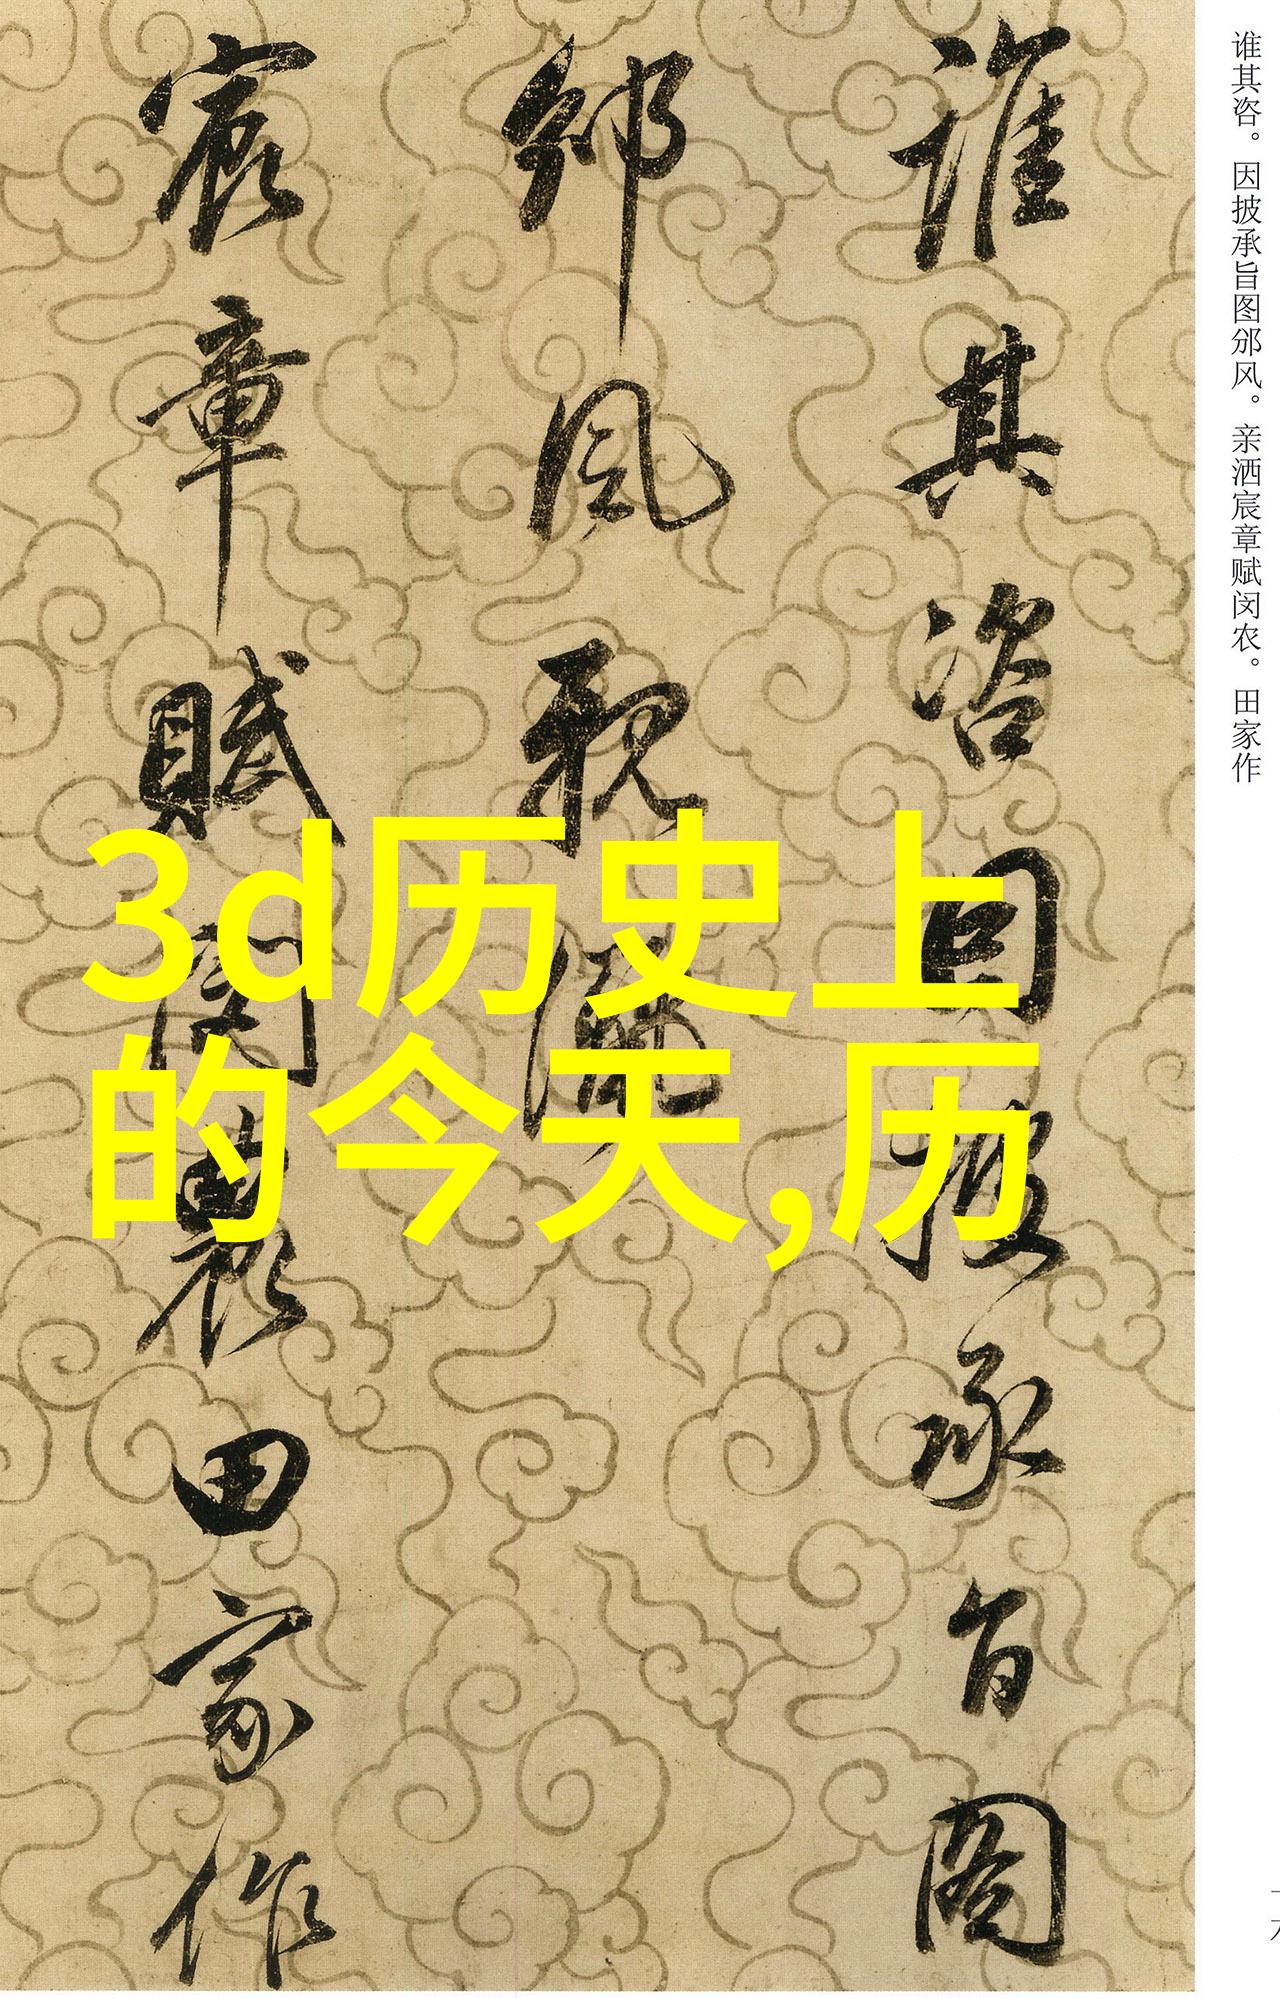 谁其咨。因披承旨图邠风。亲洒宸章赋闵农。田家作
誰其咨因披承旨圖
邠風親灑
宸章賦閔農田家作
3d历史上
的今天,历